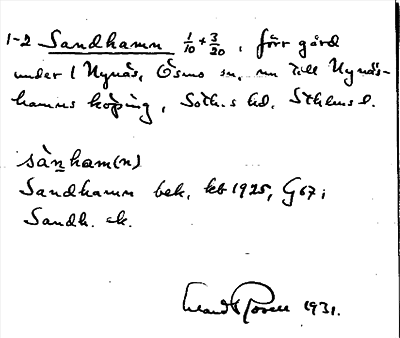 1-2 Sandhamn 1/10 + 3/20, förr gård
under 1 Nynäs, Ösmo sn, nu till Nynäs-
hamns köping, Soth.s hd, Sthlms l.
sànham(n)
Sandhamn bek. kb 1925, G67;
Sandh. ek.
1931.